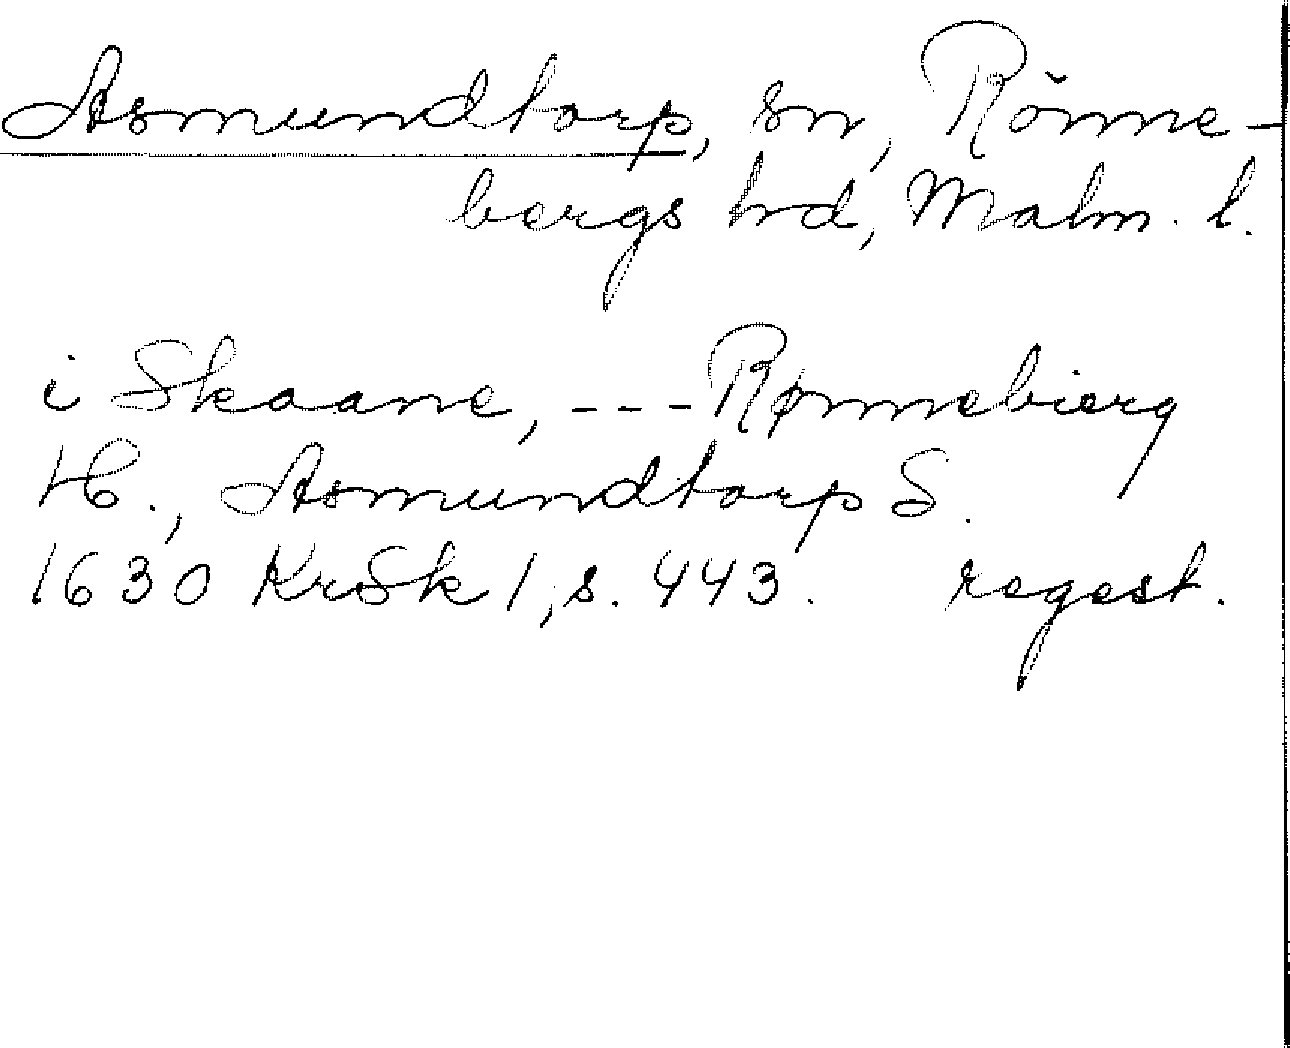 Asmundtorp, sn, Rönne-
bergs hrd, Malm. l.
i Skaane, --- Rønnebierg
H., Asmundtorp S.
1630 KrSk 1, s. 443. regest.